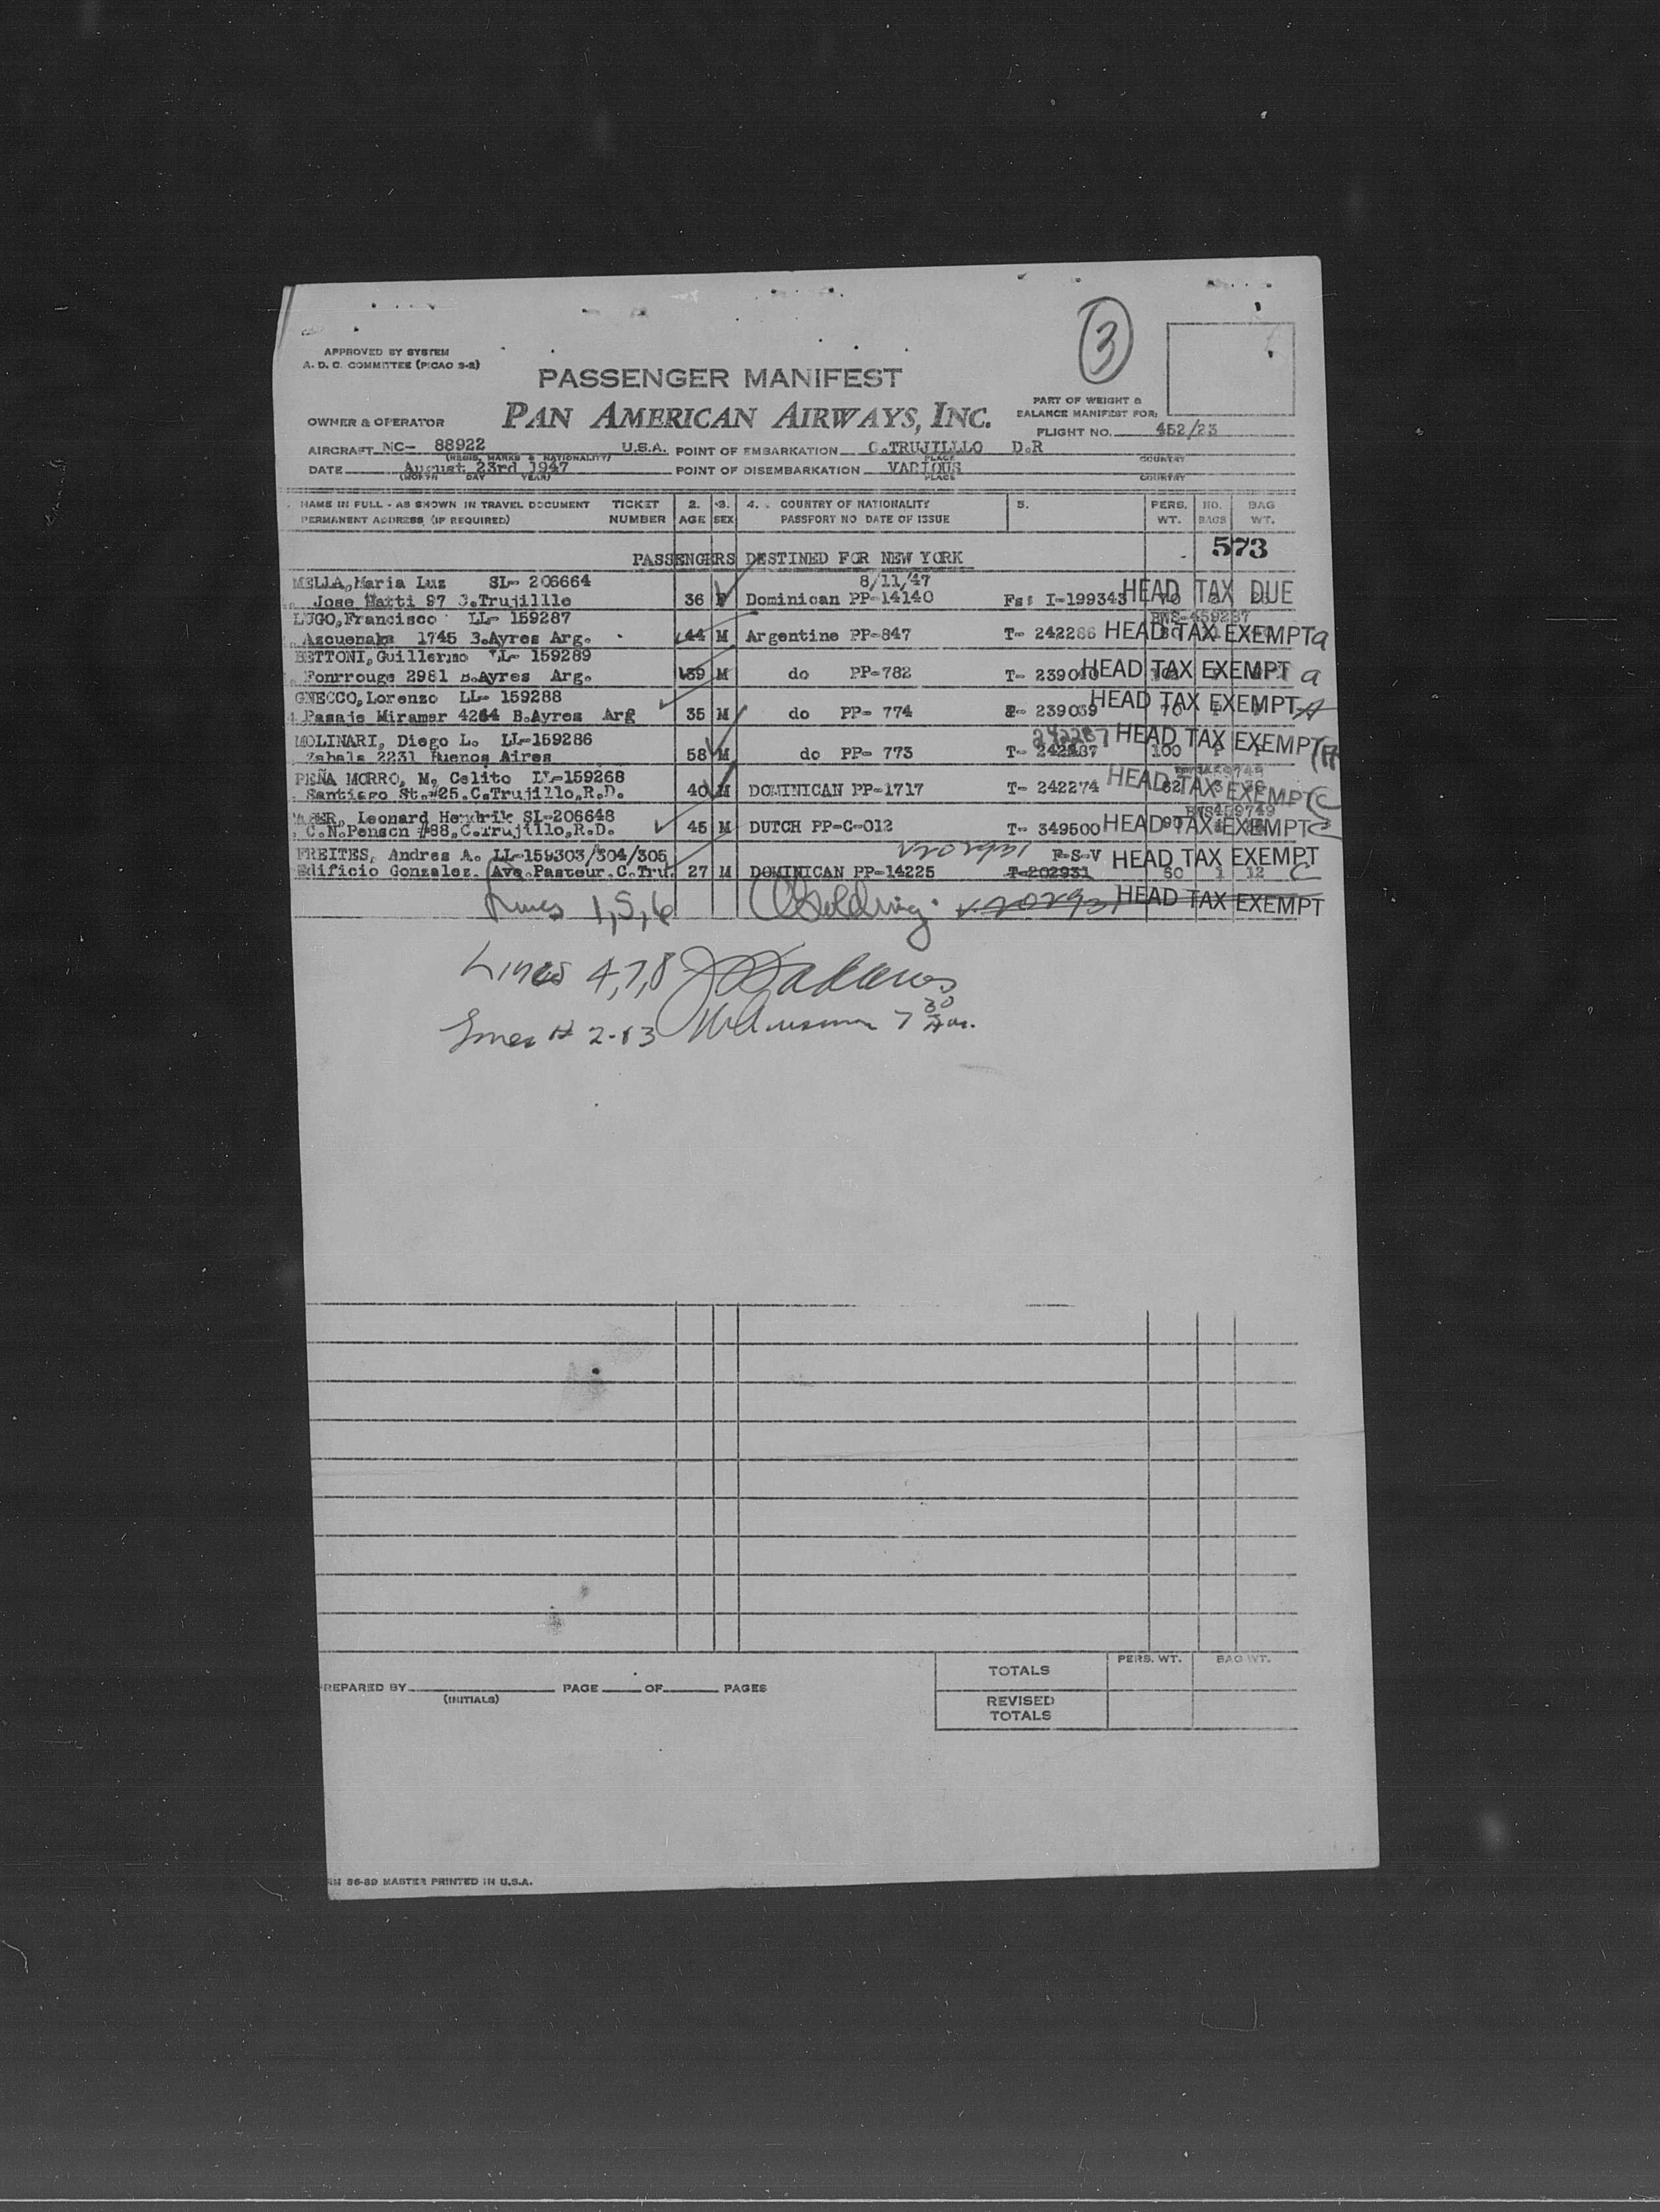 3
APPROVED BY SYSTEM
A. D. C. COMMITTEE (PICAO 9-2)
PASSENGER MANIFEST
PAN AMERICAN AIRWAYS, INC.
PART OF WEIGHT &
BALANCE MANIFEST FOR:
OWNER & OPERATOR
FLIGHT NO. 452/23
AIRCRAFT NC- 88922 U.S.A. POINT OF EMBARKATION C.TRUJILLLO D.R
(REGIS. MARKS & NATIONALITY) PLACE COUNTRY
DATE August 23rd 1947 POINT OF DISEMBARKATION VARIOUS
(MONTH DAY YEAR) PLACE COUNTRY
NAME IN FULL - AS SHOWN IN TRAVEL DOCUMENT TICKET 2. 3. 4. COUNTRY OF NATIONALITY 5. PERS. NO. BAG
PERMANENT ADDRESS (IF REQUIRED) NUMBER AGE SEX PASSPORT NO DATE OF ISSUE WT. BAGS WT.
573
PASSENGERS DESTINED FOR NEW YORK
MELLA, Maria Luz SL- 206664 8/11/47
Jose Matti 97 C.Trujillle 36 F Dominican PP-14140 Fs: I-199343 HEAD TAX DUE
LUGO, Francisco LL- 159287
Azcuenaka 1745 B.Ayres Arg. 44 M Argentine PP-847 T- 242286 HEAD TAX EXEMPT a
BETTONI, Guillermo LL- 159289
Fonrrouge 2981 B.Ayres Arg. 39 M do PP-782 T- 239040 HEAD TAX EXEMPT a
GNECCO, Lorenzo LL- 159288
Pasaje Miramar 4264 B.Ayres Arg 35 M do PP- 774 T- 239039 HEAD TAX EXEMPT A
MOLINARI, Diego L. LL-159286 242287
Zabala 2231 Buenos Aires 58 M do PP- 773 T- 242287 100 HEAD TAX EXEMPT (A
PEÑA MORRO, M. Celito LL-159268
Santiago St.#25.C.Trujillo,R.D. 40 M DOMINICAN PP-1717 T- 242274 HEAD TAX EXEMPT C
Leonard Hendrik SL-206648 BWS459749
C.N.Penson #88,C.Trujillo,R.D. 45 M DUTCH PP-C-012 T- 349500 HEAD TAX EXEMPT C
FREITES, Andres A. LL-159303/304/305 V202931 P-S-V HEAD TAX EXEMPT
Edificio Gonzalez. Ave.Pasteur.C.Tru. 27 M DOMINICAN PP-14225 T-202931 80 1 12 C
Lines 1,5,6 V202931 HEAD TAX EXEMPT
Lines 4,7,8
Lines # 2-&3
TOTALS PERS. WT. BAG WT.
REPARED BY PAGE OF PAGES
(INITIALS)
REVISED
TOTALS
RM 86-89 MASTER PRINTED IN U.S.A.